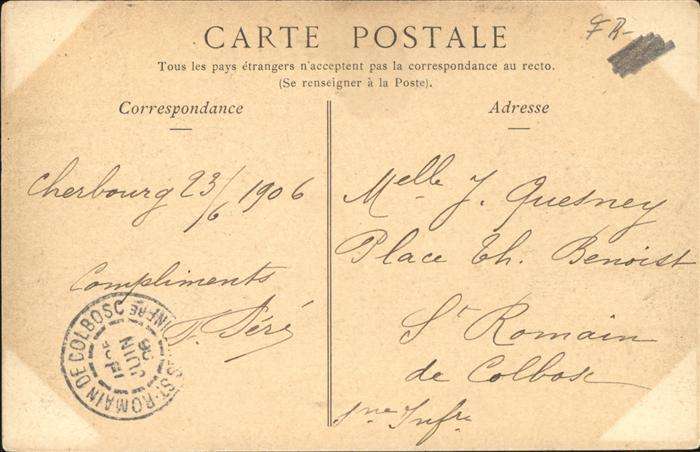 CARTE POSTALE
Tous les pays étrangers n'acceptent pas la correspondance au recto.
(Se renseigner à la Poste).
FR-
Correspondance
Cherbourg 23/6 1906
Compliments
Séré
ST-ROMAIN DE COLBOSC
JUIN
06
Adresse
Melle J. Quesney
Place Th. Benoist
St Romain
de Colbosc
Sne Infre